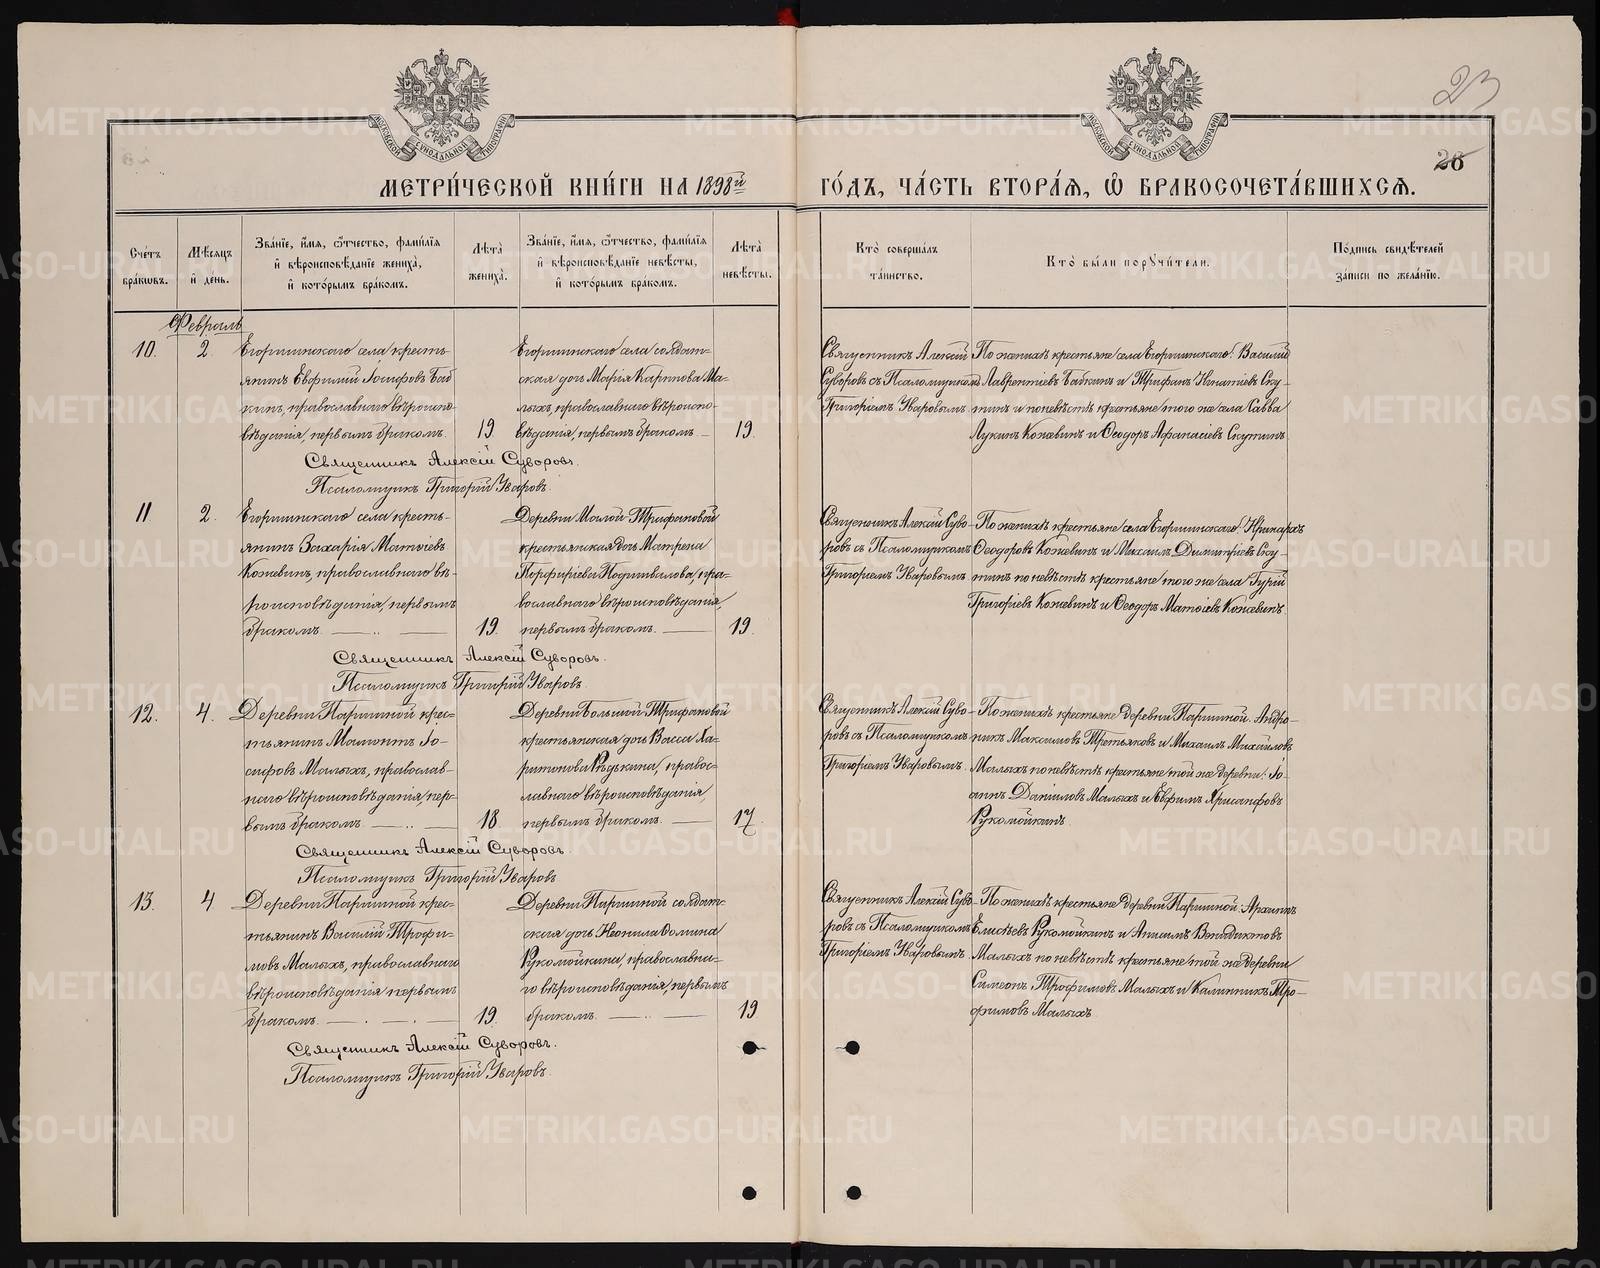 23
26
МЕТРИ́ЧЕСКОЙ КНИ́ГИ НА 1898й
ГО́ДЪ, ЧА́СТЬ ВТОРА́Я, Ѡ҆ БРАКОСОЧЕТА́ВШИХСЯ.
Сче́тъ бра́кωвъ.
Мѣ́сяцъ и҆ де́нь.
Зва́нїе, и҆́мя, ѻ҆́тчество, фами́лїя и҆ вѣроисповѣ́данїе жениха̀, и҆ кото́рымъ бра́комъ.
Лѣта̀ жениха̀.
Зва́нїе, и҆́мя, ѻ҆́тчество, фами́лїя и҆ вѣроисповѣ́данїе невѣ́сты, и҆ кото́рымъ бра́комъ.
Лѣта̀ невѣ́сты.
Кто̀ соверша́лъ та́инство.
Кто̀ бы́ли порꙋчи́тели.
По́дпись свидѣ́телей за́писи по жела́нїю.
Февраль
10.
2.
Егоршинскаго села кресть-
янинъ Евфимій Іосифовъ Баб
кинъ, православнаго вѣроиспо-
вѣданія, первымъ бракомъ.
19.
Егоршинскаго села солдат-
ская дочь Марія Карпова Ма-
лыхъ, православнаго вѣроиспо-
вѣданія, первымъ бракомъ.
19.
Священникъ Алексій
Суворовъ съ Псаломщикомъ
Григоріемъ Уваровымъ
По женихѣ крестьяне села Егоршинскаго: Василій
Лаврентіевъ Бабкинъ и Трифанъ Игнатіевъ Ску-
тинъ и по невѣстѣ крестьяне того же села Савва
Лукинъ Кожевинъ и Ѳеодоръ Афанасіевъ Скутинъ.
Священникъ Алексій Суворовъ.
Псаломщикъ Григорій Уваровъ.
11
2.
Егоршинскаго села кресть-
янинъ Захарія Матѳіевъ
Кожевинъ, православнаго вѣ-
роисповѣданія, первымъ
бракомъ.
19.
Деревни Малой Трифановой
крестьянская дочь Матрена
Порфиріева Подшивалова, пра-
вославнаго вѣроисповѣданія,
первымъ бракомъ.
19.
Священникъ Алексій Суво-
ровъ съ Псаломщикомъ
Григоріемъ Уваровымъ
По женихѣ крестьяне села Егоршинскаго: Иринархъ
Ѳеодоровъ Кожевинъ и Михаилъ Димитріевъ Ску-
тинъ по невѣстѣ крестьяне того же села Гурій
Григоріевъ Кожевинъ и Ѳеодоръ Матѳіевъ Кожевинъ.
Священникъ Алексій Суворовъ.
Псаломщикъ Григорій Уваровъ.
12.
4.
Деревни Паршиной крес-
тьянинъ Мамонтъ Іо-
сифовъ Малыхъ, православ-
наго вѣроисповѣданія, пер-
вымъ бракомъ.
18
Деревни Большой Трифановой
крестьянская дочь Васса Ха-
ритонова Рѣдькина, правос-
лавнаго вѣроисповѣданія,
первымъ бракомъ.
17
Священникъ Алексій Суво-
ровъ съ Псаломщикомъ
Григоріемъ Уваровымъ.
По женихѣ крестьяне деревни Паршиной: Андро-
никъ Максимовъ Третьяковъ и Михаилъ Михайловъ
Малыхъ по невѣстѣ крестьяне той же деревни: Іо-
аннъ Даніиловъ Малыхъ и Евфимъ Хрисанфовъ
Рукомойкинъ.
Священникъ Алексій Суворовъ.
Псаломщикъ Григорій Уваровъ
13.
4
Деревни Паршиной крес-
тьянинъ Василій Трофи-
мовъ Малыхъ, православнаго
вѣроисповѣданія первымъ
бракомъ.
19.
Деревни Паршиной солдат-
ская дочь Неонила Ѳомина
Рукомойкина, православна-
го вѣроисповѣданія, первымъ
бракомъ.
19
Священникъ Алексій Суво-
ровъ съ Псаломщикомъ
Григоріемъ Уваровымъ.
По женихѣ крестьяне деревни Паршиной: Архипъ
Елисѣевъ Рукомойкинъ и Анисимъ Венедиктовъ
Малыхъ по невѣстѣ крестьяне той же деревни
Симеонъ Трофимовъ Малыхъ и Калинникъ Тро-
фимовъ Малыхъ.
Священникъ Алексій Суворовъ.
Псаломщикъ Григорій Уваровъ.
METRIKI.GASO-URAL.RU